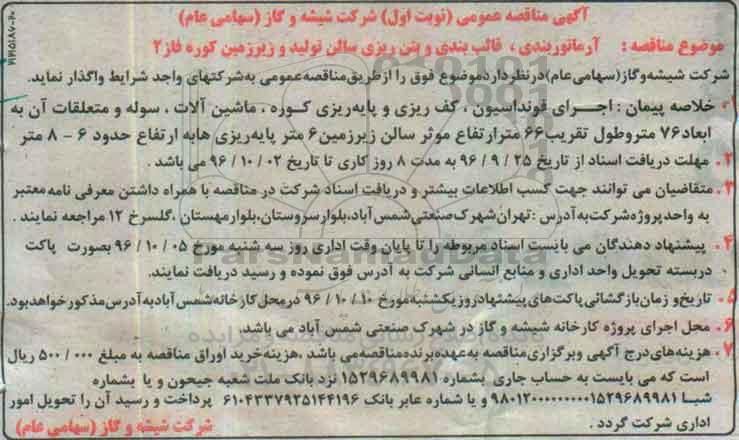 آگهی مناقصه عمومی (نوبت اول) شرکت شیشه و گاز (سهامی عام)
موضوع مناقصه : آرماتوربندی ، قالب بندی و بتن ریزی سالن تولید و زیرزمین کوره فاز۲
شرکت شیشه وگاز(سهامی عام)درنظرداردموضوع فوق را ازطریق مناقصه عمومی به شرکتهای واجد شرایط واگذار نماید.
۱. خلاصه پیمان : اجرای فونداسیون ، کف ریزی و پایه ریزی کوره ، ماشین آلات ، سوله و متعلقات آن به
ابعاد۷۶ متروطول تقریب۶۶ مترارتفاع موثر سالن زیرزمین۶ متر پایه ریزی هابه ارتفاع حدود ۶ - ۸ متر
۲. مهلت دریافت اسناد از تاریخ ۲۵ / ۹ / ۹۶ به مدت ۸ روز کاری تا تاریخ ۰۲ / ۱۰ / ۹۶ می باشد .
۳. متقاضیان می توانند جهت کسب اطلاعات بیشتر و دریافت اسناد شرکت در مناقصه با همراه داشتن معرفی نامه معتبر
به واحدپروژه شرکت به آدرس :تهران شهرک صنعتی شمس آباد،بلوارسروستان،بلوارمهستان ،گلسرخ ۱۲ مراجعه نمایند .
۴. پیشنهاد دهندگان می بایست اسناد مربوطه را تا پایان وقت اداری روز سه شنبه مورخ ۰۵ / ۱۰ / ۹۶ بصورت پاکت
دربسته تحویل واحد اداری و منابع انسانی شرکت به آدرس فوق نموده و رسید دریافت نمایند.
۵. تاریخ و زمان بازگشائی پاکت های پیشنهاد روز یکشنبه مورخ ۱۰ / ۱۰ / ۹۶ درمحل کارخانه شمس آباد به آدرس مذکور خواهد بود.
۶. محل اجرای پروژه کارخانه شیشه و گاز در شهرک صنعتی شمس آباد می باشد.
۷. هزینه های درج آگهی وبرگزاری مناقصه به عهده برنده مناقصه می باشد ،هزینه خرید اوراق مناقصه به مبلغ ۰۰۰ / ۵۰۰ ریال
است که می بایست به حساب جاری بشماره ۱۵۲۹۶۸۹۹۸۱ نزد بانک ملت شعبه جیحون و یا بشماره
شبا ۹۸۰۱۲۰۰۰۰۰۰۰۰۰۱۵۲۹۶۸۹۹۸۱ و یا شماره عابر بانک ۶۱۰۴۳۳۷۹۲۵۱۴۴۱۹۶ پرداخت و رسید آن را تحویل امور
اداری شرکت گردد .
شرکت شیشه و گاز (سهامی عام)
ParsNamadData